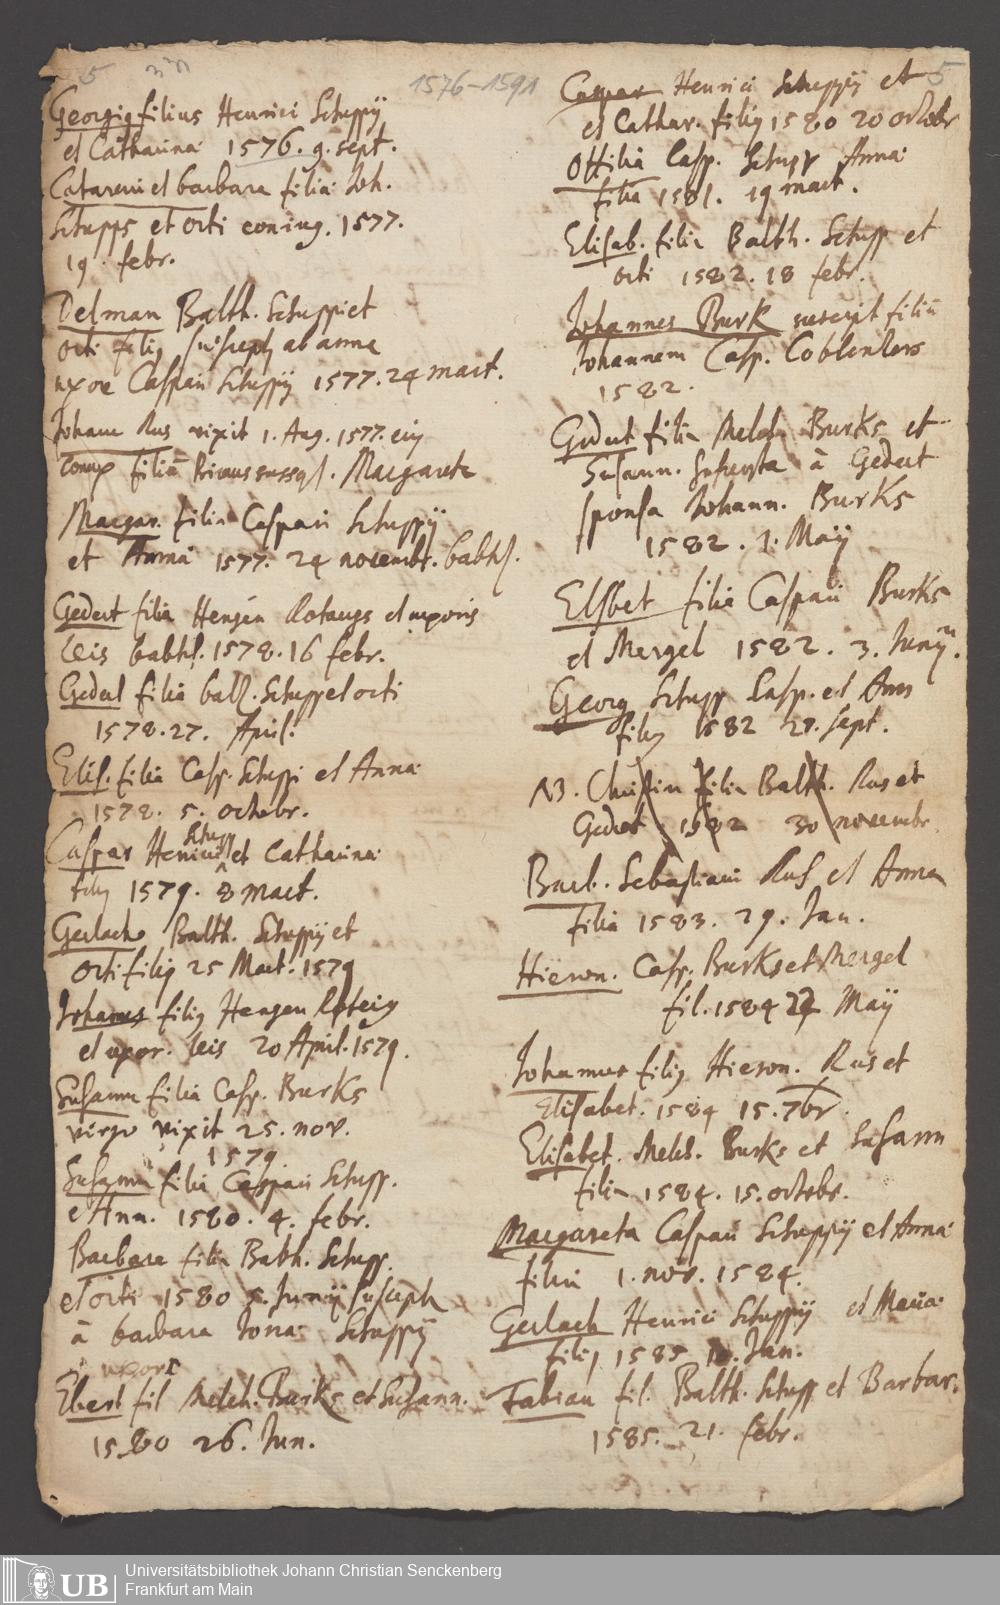 5
1576-1591
5
Georgig filius Henrici Schuppij
et Catharina 1576. 9. sept.
Catarein et barbara filia Joh.
Schupps et orti coniug. 1577.
19. febr.
Delman Balth. Schuppi et
orti filig suscept ab anna
uxore Caspari Schuppij 1577. 24 mart.
Johann Rus vixit 1. Aug. 1577. eig
filia Margareta
Margar. filia Caspari Schuppij
et Anna 1577. 24 novembr.
Gedert filia Hengen et uxoris
leis 1578. 16 febr.
Gedert filia balt. Schupp et orti
1578. 27. April.
Elis. filia Casp. Schuppi et Anna
1578. 5. octobr.
Caspar Henrici Schupp et Catharina
filig 1579. 8 mart.
Gerlach Balth. Schuppij et
orti filig 25 Mart. 1579
Johannes filig Hengen
et uxor. leis 20 April. 1579.
Susanna filia Casp. Burks
virgo vixit 25. nov.
1579
Susanna filia Caspari Schupp.
et Ann. 1580. 4. febr.
Barbara filia Balth. Schupp.
et orti 1580 5. Junij suscepta
à barbara Jona Schuppij
uxore
Ebert fil Melch. Burks et Susann.
1580 26. Jun.
Caspar Henrici Schuppij et
et Cathar. filig 1580 20 octobr
Ottilia Casp. Schupp Anna
filia 1581. 19 mart.
Elisab. filia Balth. Schupp et
orti 1582. 18 febr.
Johannes Burk suscepit filiu
Johannem Casp. Coblentzers
1582.
Gedert filia Melch. Burks et
Susann. suscepta à Gedert
sponsa Johann. Burks
1582. 1. Maÿ
Elsbet filia Caspari Burks
et Mergel 1582. 3. Junij.
Georg Schupp Casp. et Ann
filig 1582 21. sept.
NB. Christin filia Balth. Rus et
Gedert 1582 30 novembr.
Barb. Sebastiani Rus et Anna
filia 1583. 29. Jan.
Hieron. Casp. Burks et Mergel
fil. 1584 24 Maÿ
Johannes filig Hieron. Rus et
Elisabet. 1584 15. 7br.
Elisabet. Melch. Burks et Susann
filia 1584. 15. octobr.
Margareta Caspari Schuppij et Anna
filia 1. nov. 1584.
Gerlach Henrici Schuppij et Maria
filig 1585 10. Jan.
Fabian fil. Balth. Schupp et Barbar.
1585. 21. febr.
UB
Universitätsbibliothek Johann Christian Senckenberg
Frankfurt am Main